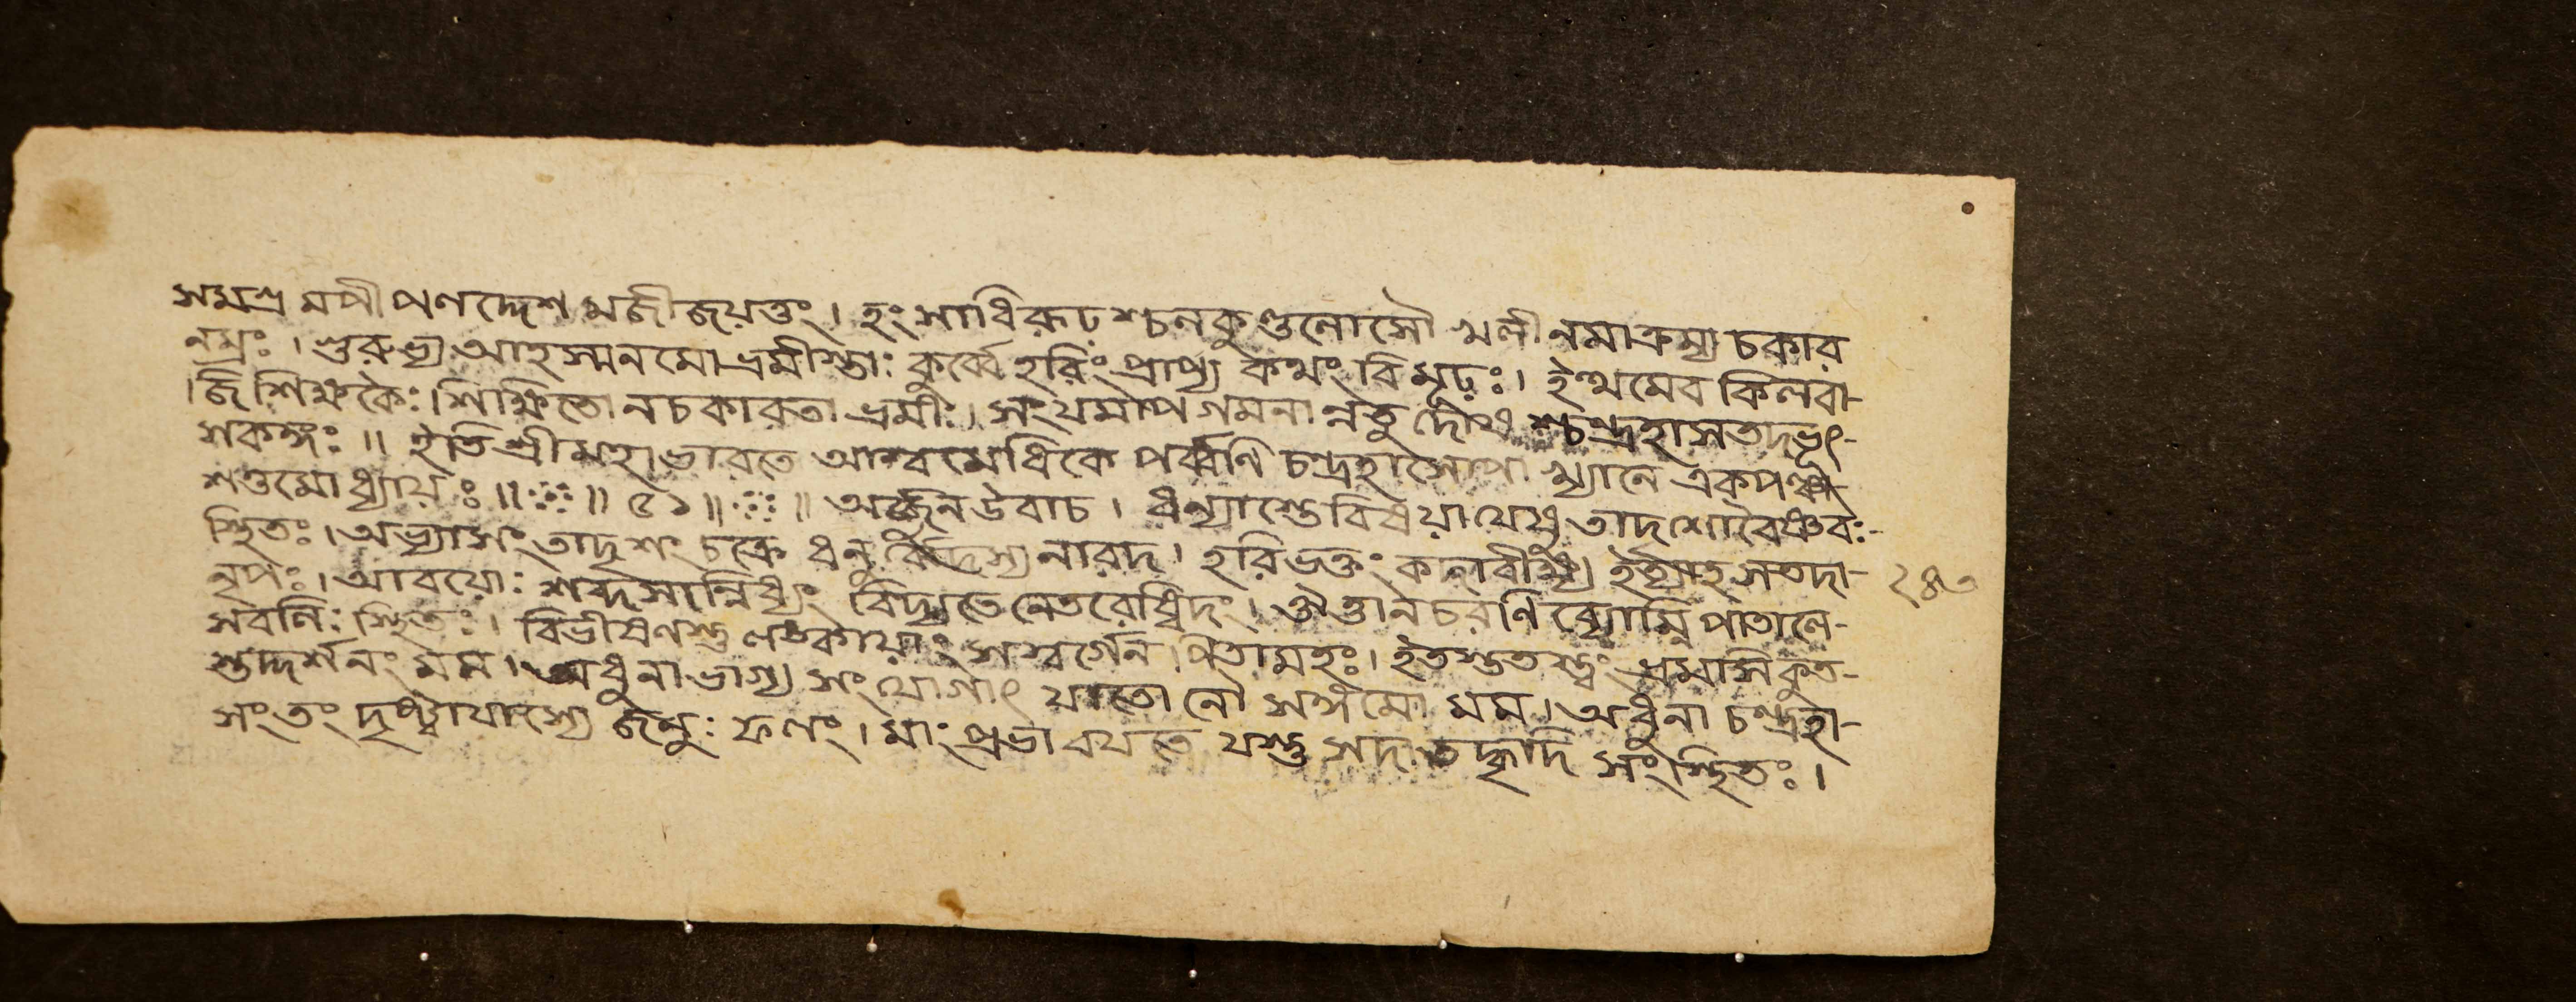 সমশ্র মপী পণদ্দেশ মজীজয়ত্তং । হং সাধিরূঢ় শ্চনকুণ্ডনোসৌ খলীনমাক্রম্য চকার
নম্রঃ । গুরুভ্য আহস্মনমো ভ্রমীস্তাঃ কুর্ব্বে হরিং প্রাপ্য কথং বিমূঢ়ঃ । ইত্থমেব কিলবা-
।জি শিক্ষকৈঃ । শিক্ষিতো নচকারতা ভ্রমীঃ । সংযমাপ গমনা ন্নতু দৌষ্ট শ্চন্দ্রহাসতদভূৎ-
শকঙ্গঃ ॥ ইতি শ্রীমহাভারতে আশ্বমেধিকে পর্ব্বণি চন্দ্রহাসোপা খ্যানে একপঞ্চা-
শত্তমোধ্যায়ঃ ॥ ৫১ ॥ অর্জ্জুন উবাচ । ধন্যাস্তে বিষয়া যেষু তাদৃশো বৈষ্ণবঃ-
স্থিতঃ । অভ্যাসং তাদৃশং চক্রে ধনুর্ব্বেদস্য নারদ । হরিভক্তং কদাবীক্ষ্যে ইত্যাহ সতদা-
নৃপঃ । আবয়োঃ শব্দসান্নিধ্যং বিদ্যতে নেতরেষ্বিদং । ঔত্তানচরণি র্ব্যোম্নি পাতালে- ২৪৩
সবলিঃ স্থিতঃ । বিভীষণস্তু লঙ্কায়াং সস্বর্গেন পিতামহঃ । ইতস্ততস্ত্বং ভ্রমসি কুত-
স্তদ্দর্শনং মম । অধুনা ভাগ্য সং যোগাৎ যাতো নৌ সঙ্গমো মম । অধুনা চন্দ্রহা-
সং তং দৃষ্ট্বা যাস্যে জনুঃ ফলং । মাং প্রভাবযতে যস্তু সদা তদ্হৃদি সংস্থিতঃ ।